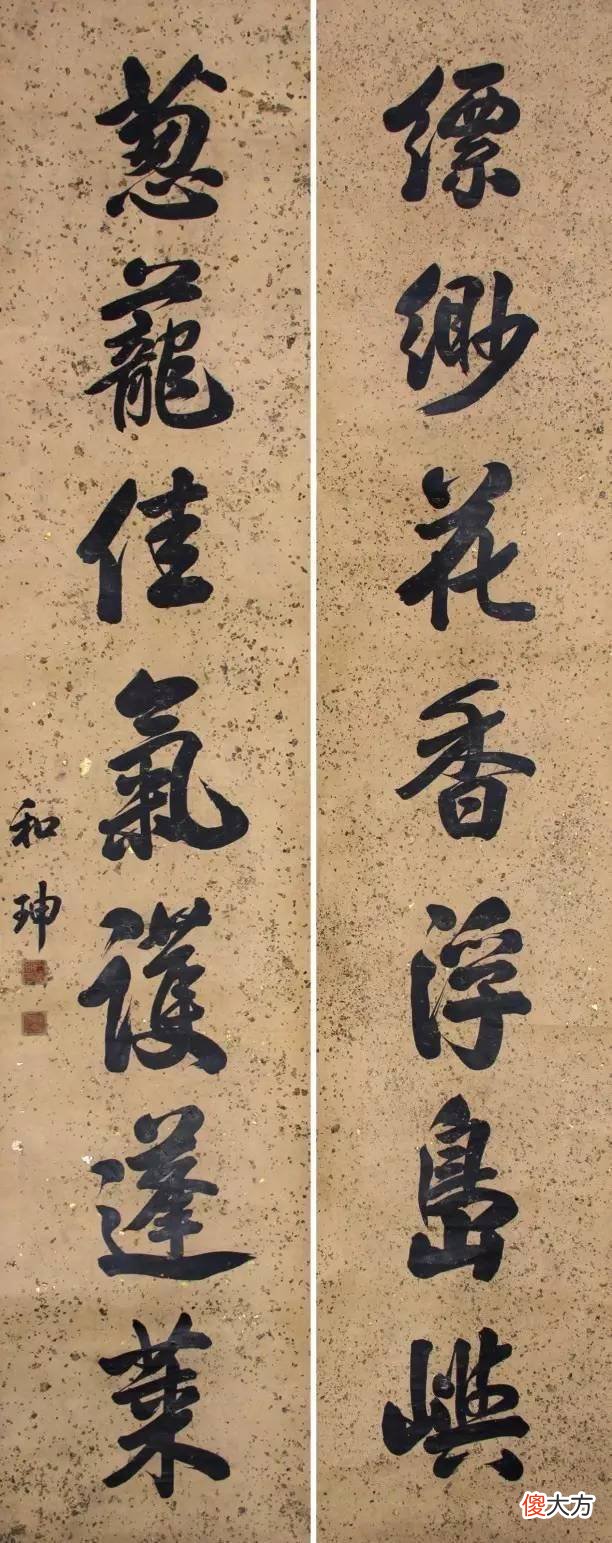 縹緲花香浮島嶼
葱蘢佳氣護蓬萊
和珅
傻大方